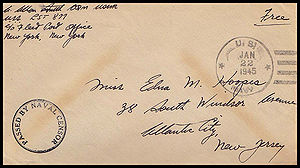 USS LST 877
c/o Fleet Post Office
New York, New York
Free
U.S.
JAN
22
1945
NAVY
Miss Edna M.
38 South Windsor Avenue
Atlantic City,
New Jersey
PASSED BY NAVAL CENSOR